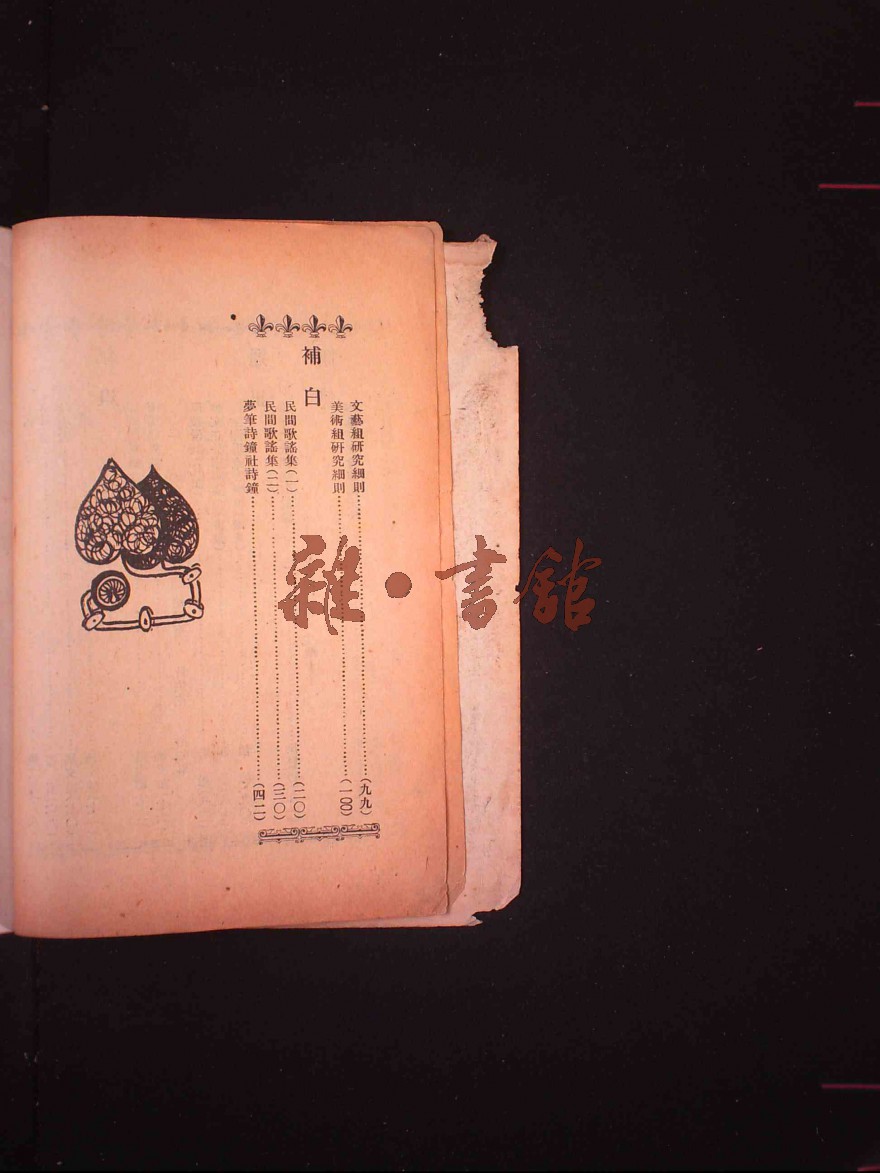 文藝組研究細則……(九九)
美術組研究細則……(一〇〇)
補白
民間歌謠集(一)……(二〇)
民間歌謠集(二)……(三〇)
夢筆詩鐘社詩鐘……(四二)
雜·書館